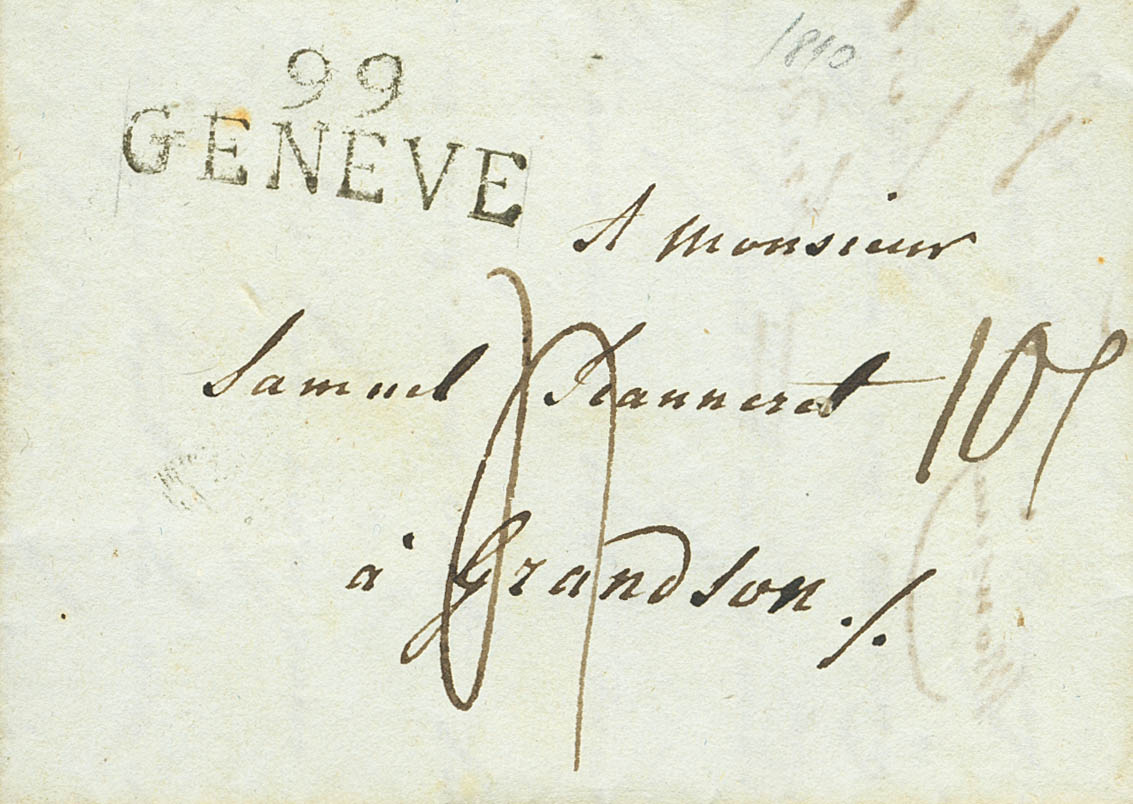 1810
99
GENEVE
A Monsieur
Samuel Jeanneret
10
à Grandson ./.